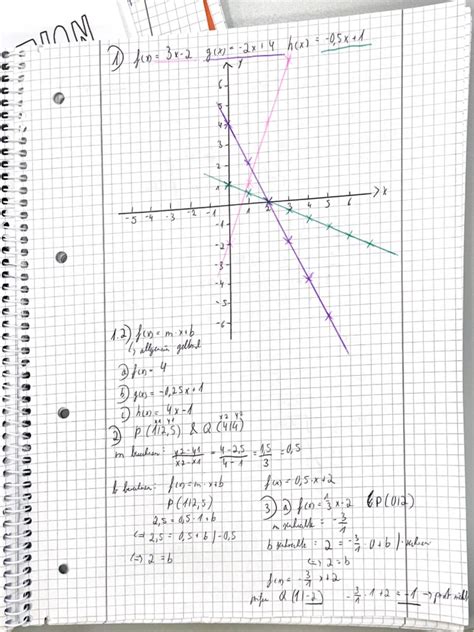 1) f(x) = 3x-2 g(x) = -2x+4 h(x) = -0,5x+1
y
6
5
4
3
2
1
-5 -4 -3 -2 -1 1 2 3 4 5 6 x
-1
-2
-3
-4
-5
-6
1.2) f(x) = m·x+b
↳ allgemein gelöst
a) f(x) = 4
b) g(x) = -0,25x+1
c) h(x) = 4x-1
2) P(1|2,5) & Q(4|4)
x1 y1 x2 y2
m berechnen: y2-y1/x2-x1 = 4-2,5/4-1 = 1,5/3 = 0,5
b berechnen: f(x) = m·x+b
P(1|2,5)
2,5 = 0,5·1+b
⇔ 2,5 = 0,5+b /-0,5
⇔ 2 = b
f(x) = 0,5·x+2
3) a) f(x) = 1/3x-2 P(0|2)
m = -3/1
b 2 = -3/1·0+b
⇔ 2 = b
f(x) = -3/1x+2
prüfen Q(1|-2) -3/1·1+2 = -1 → passt nicht